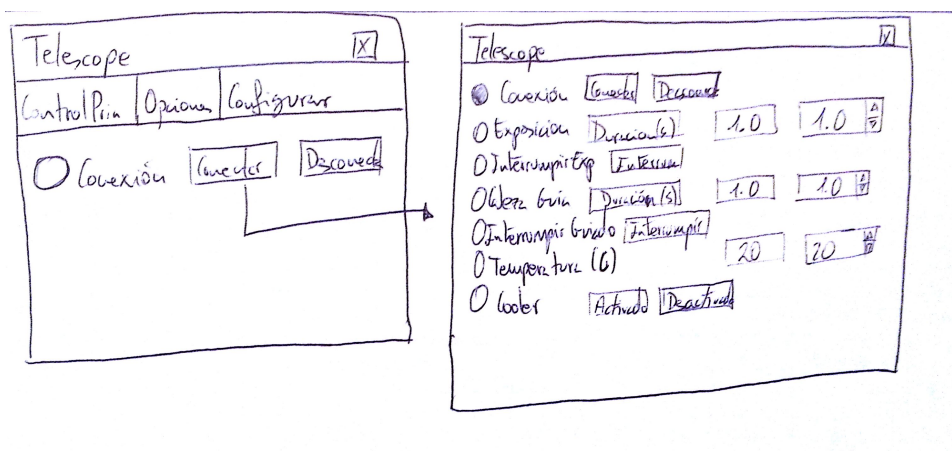 Telescope X
Control Prin Opciones Configurar
Conexión Conectar Desconect
Telescope X
Conexión Conectar Desconect
Exposicion Duracion(s) 1.0 1.0
Interrumpir Exp Interrum
Guia Duración(s) 1.0 1.0
Interrumpir Guiado Interrumpir
Temperatura (C) 20 20
Cooler Activado Desactivado